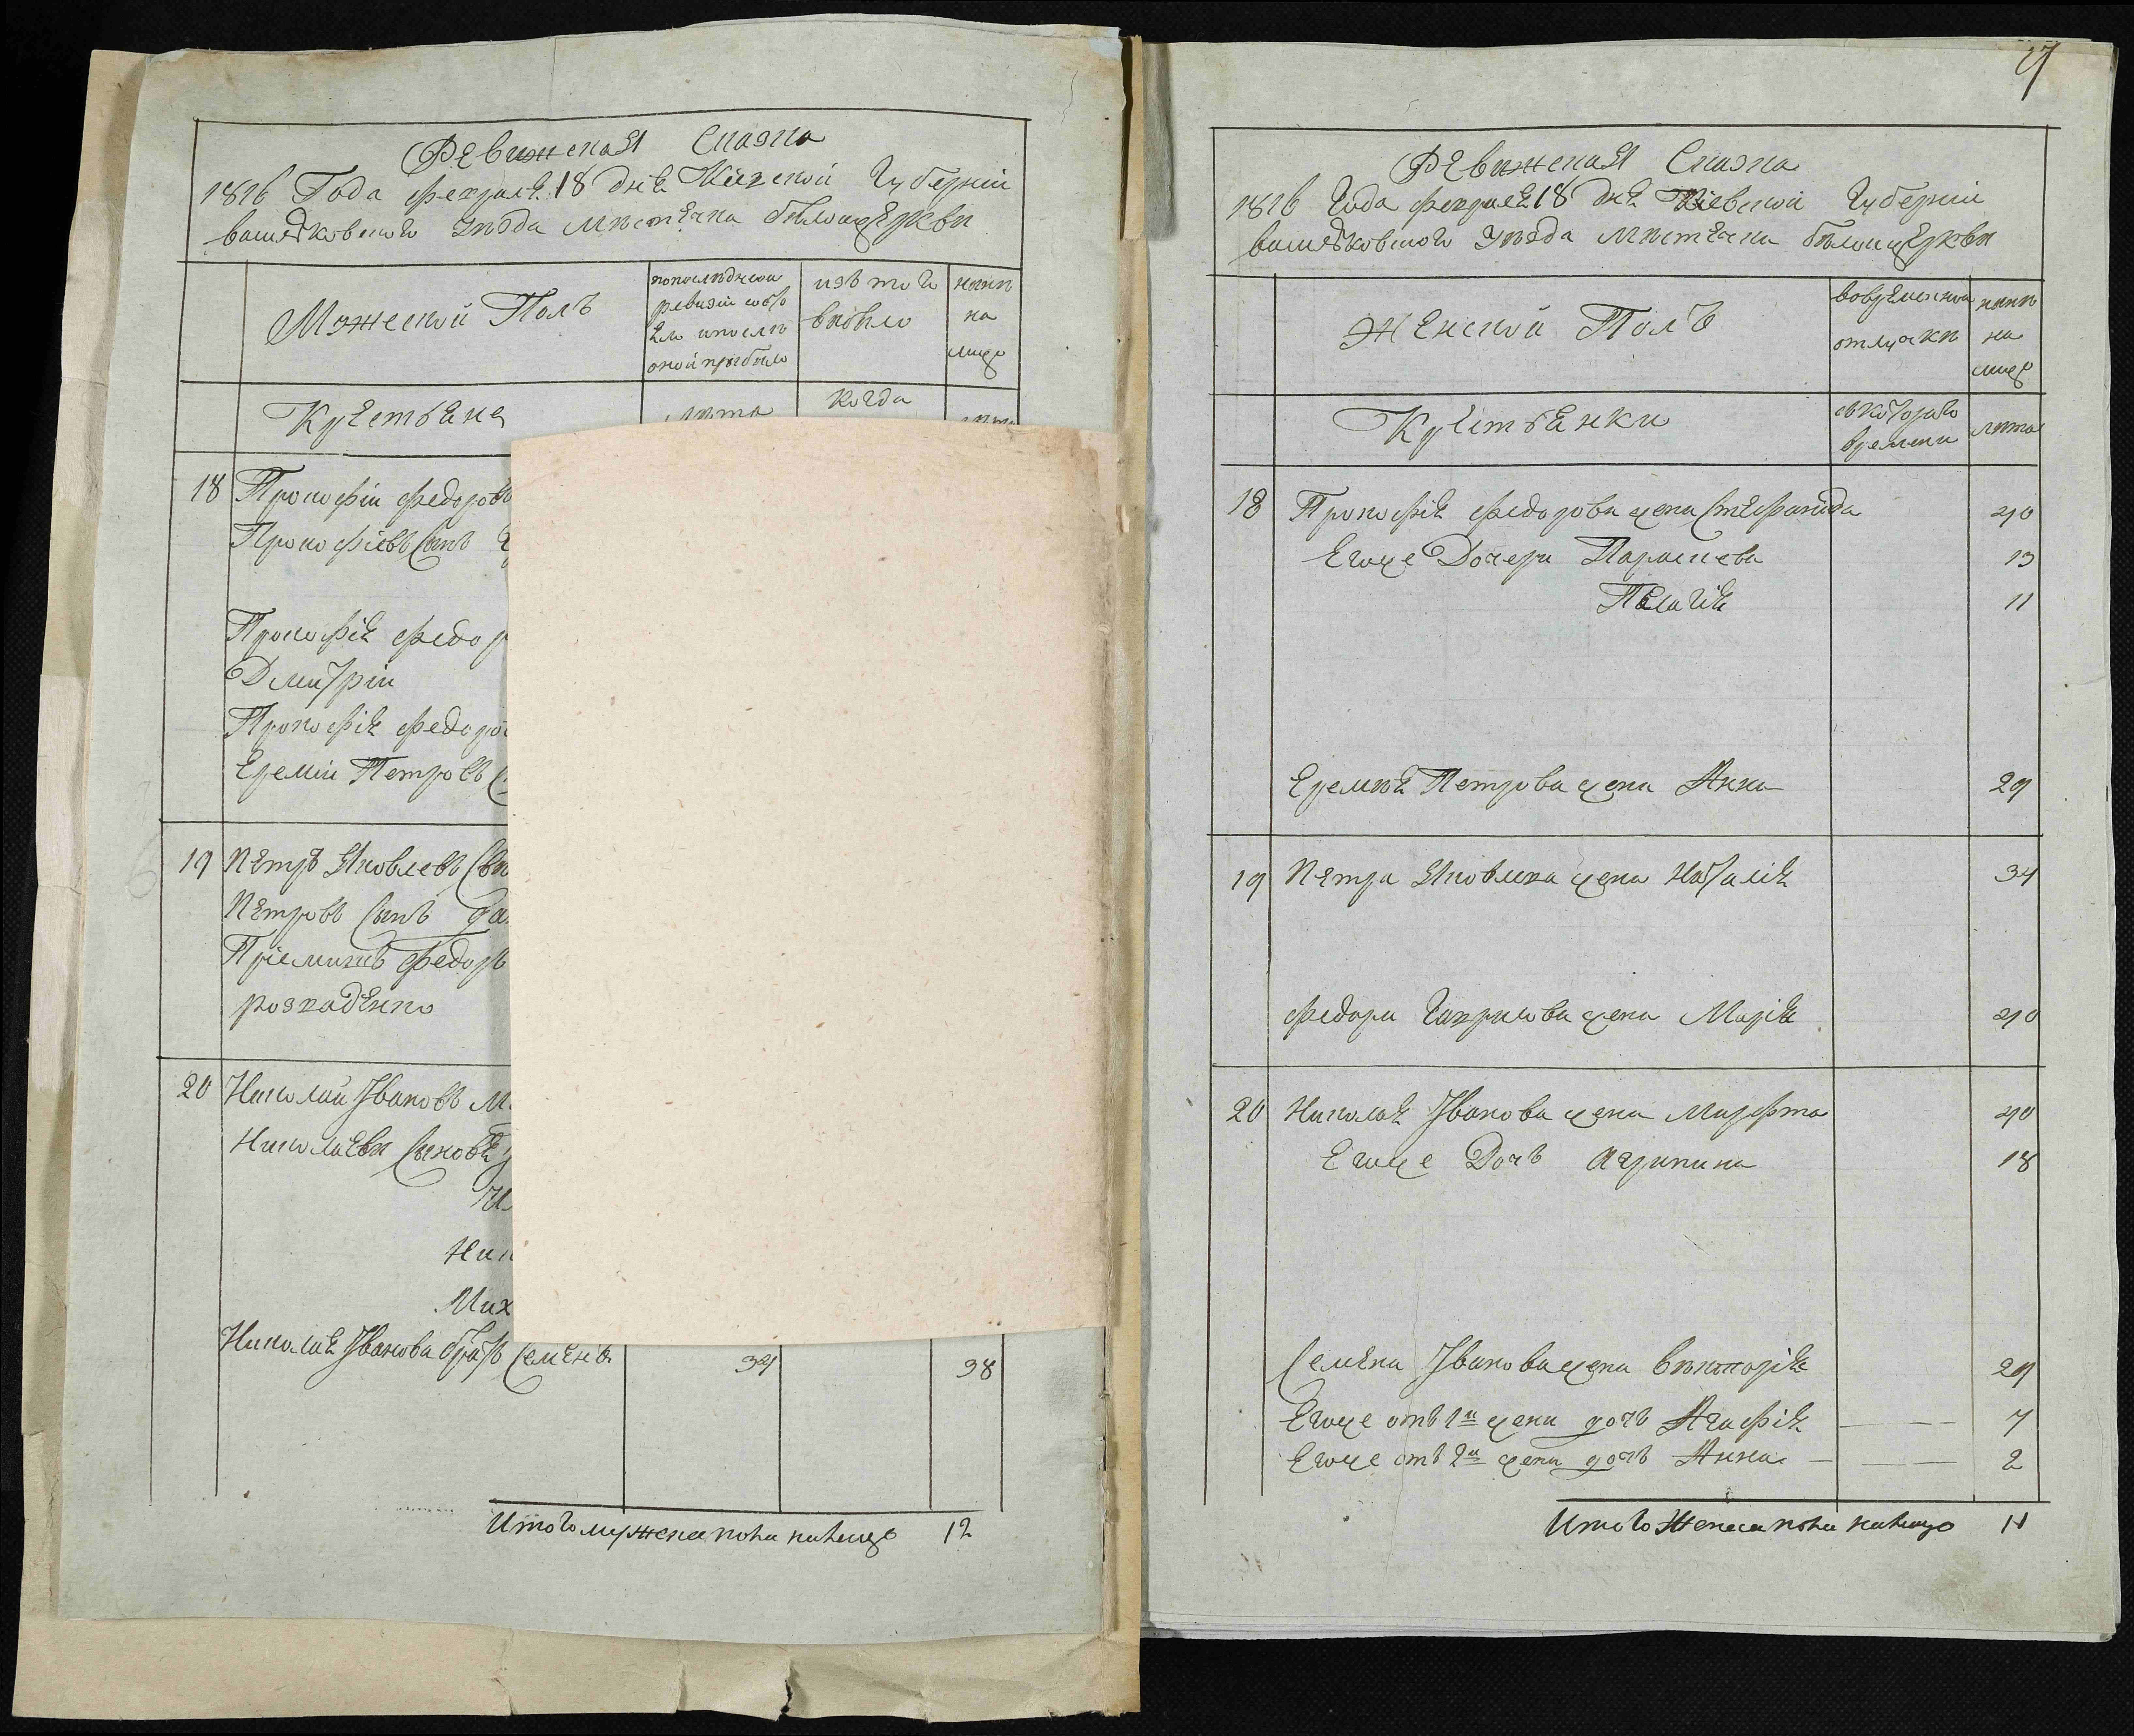 Ревижская Сказка
1816 Года февраля 18 дня Киевской Губернїи
васильковского Уезда местечка белоцеркви
Мужеской Полъ
попоследней
ревизїи состо
яло и после
оной прибыло
изъ того
выбыло
ныне
на
лицо
Крестьяне
лета
когда
лета
18 Прокофїи федоров
Прокофїевъ Сынъ
Прокофїя федор
Дмитрїи
Прокофїя федоро
Еремїи Петровъ
19 Петръ Яковлевъ
Петровъ Сынъ
Прїемышъ федоръ
20 Николай Ивановъ М
Николаевы Сыновья
Ник
Мих
Николая Иванова братъ Семенъ 34 38
Итого мужеска пола налицо 12
27
Ревижская Сказка
1816 Года февраля 18 дня Киевской Губернїи
васильковского Уезда местечка белоцеркви
Женской Полъ
вовременной
отлучки
ныне
на
лице
Крестьянки
скоторого
времени
лета
18 Прокофїя федорова жена Стефанида 40
Егоже Дочери Парасковя 13
Пелагїя 11
Еремея Петрова жена Анна 29
19 Петра Яковлева жена Наталїя 34
федора Гаврилова жена Марїя 40
20 Николая Иванова жена Марфта 40
Егоже Дочь Агрипина 18
Семена Иванова жена викторїя 29
Егоже отъ 1й жены дочь Агафїя 7
Егоже отъ 2й жены дочь Анна 2
Итого Женска пола налицо 11